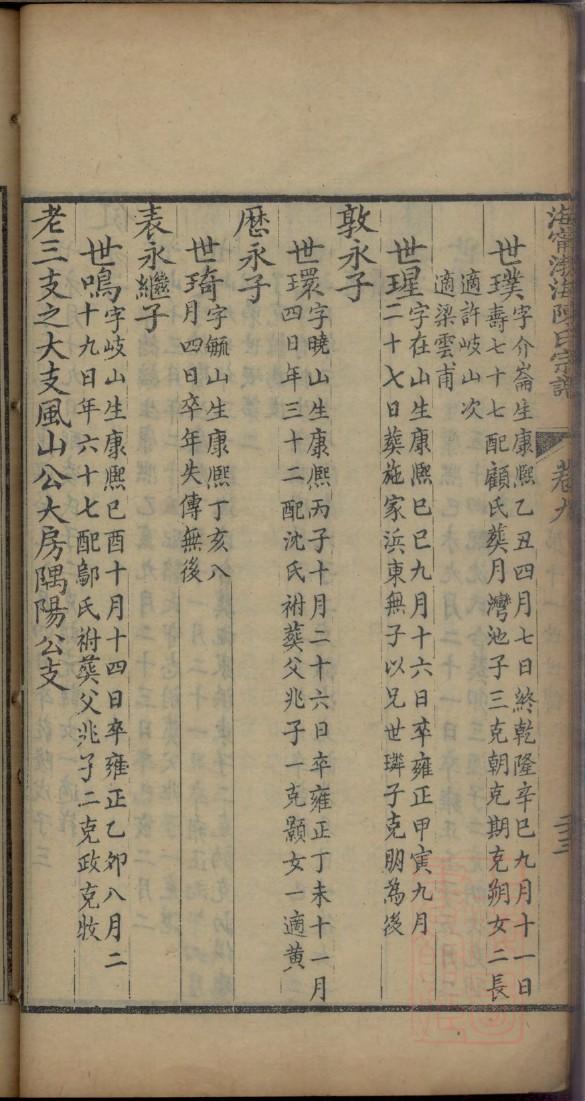 海甯渤海陳氏宗譜
卷九
二三
世璞字介崙生康熙乙丑四月七日終乾隆辛巳九月十一日
壽七十七配顧氏葬月灣池子三克朝克期克朔女二長
適許岐山次
適梁雲甫
世瑆字在山生康熙己巳九月十六日卒雍正甲寅九月
二十七日葬施家浜東無子以兄世璘子克明為後
敦永子
世環字曉山生康熙丙子十月二十六日卒雍正丁未十一月
四日年三十二配沈氏祔葬父兆子一克顥女一適黄
歷永子
世琦字毓山生康熙丁亥八
月四日卒年失傳無後
表永繼子
世鳴字岐山生康熙己酉十月十四日卒雍正乙卯八月二
十九日年六十七配鄔氏祔葬父兆子二克政克牧
老三支之大支風山公大房隅陽公支